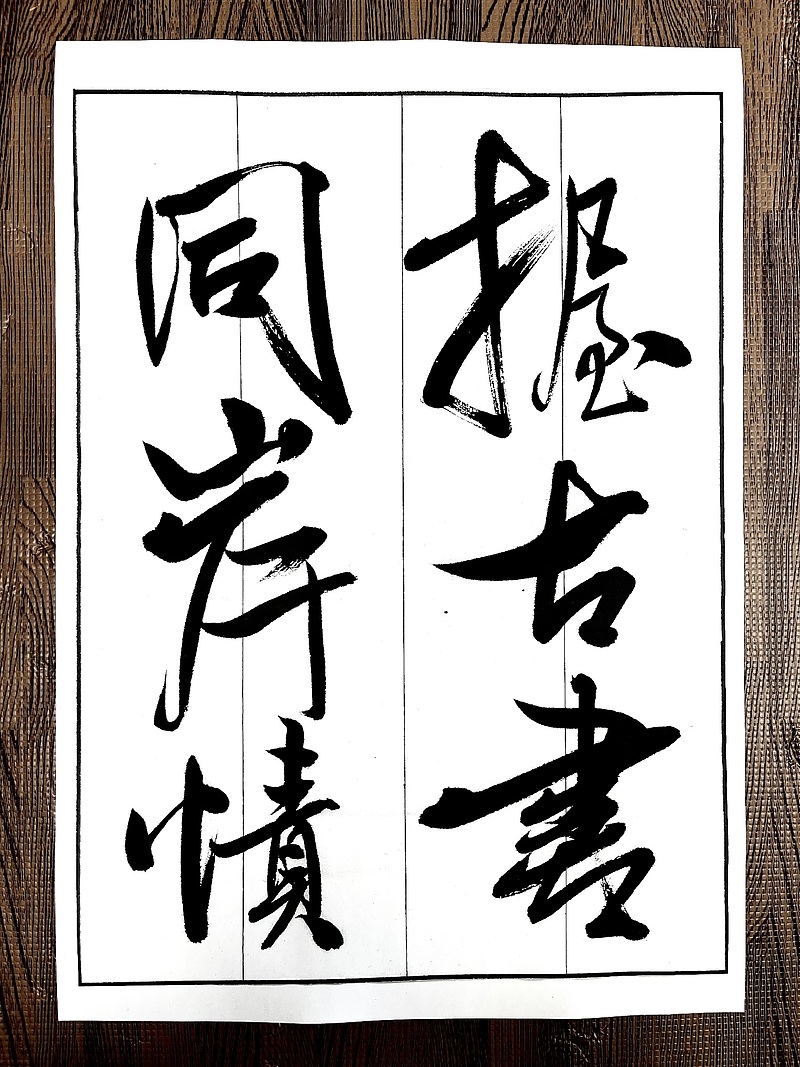 握古書
同岸幘